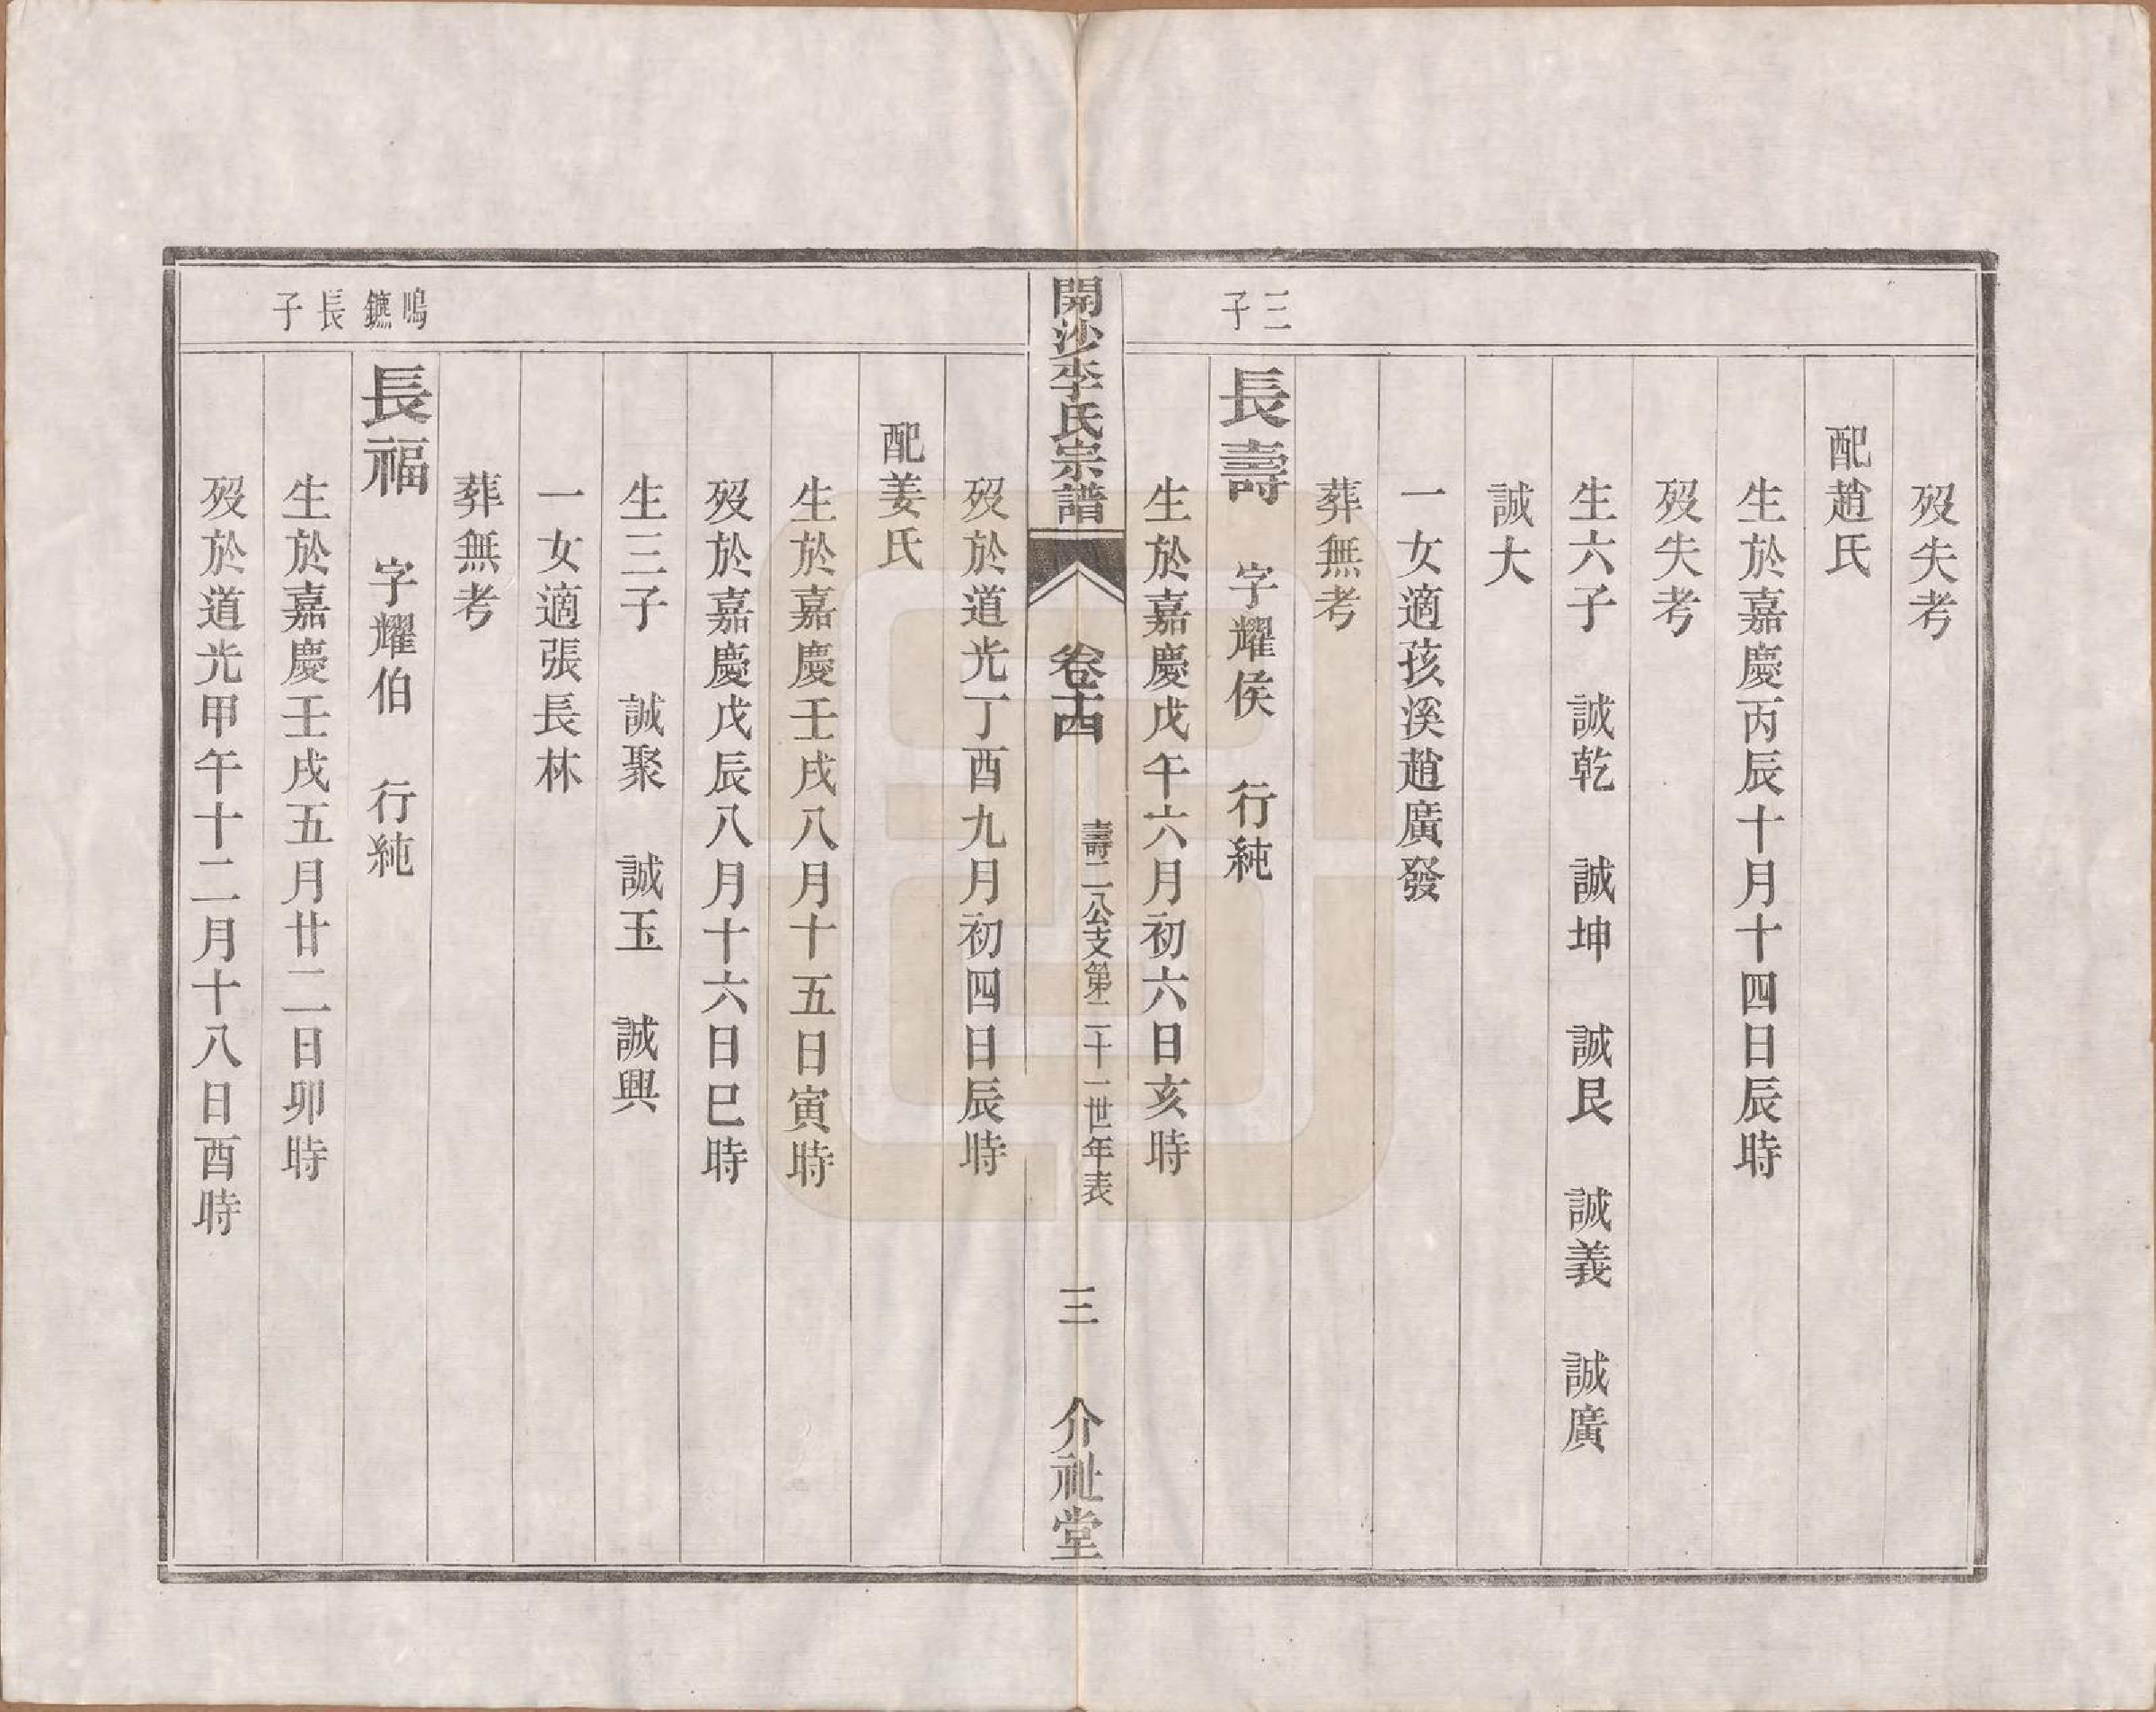 歿失考
配趙氏
生於嘉慶丙辰十月十四日辰時
歿失考
生六子　誠乾　誠坤　誠艮　誠義　誠廣
誠大
一女適孩溪趙廣發
葬無考
三子
長壽　字耀侯　行純
生於嘉慶戊午六月初六日亥時
開沙李氏宗譜　卷十四　壽二公支第二十一世年表　三　介祉堂
歿於道光丁酉九月初四日辰時
配姜氏
生於嘉慶壬戌八月十五日寅時
歿於嘉慶戊辰八月十六日巳時
生三子　誠聚　誠玉　誠興
一女適張長林
葬無考
鳴鑣長子
長福　字耀伯　行純
生於嘉慶壬戌五月廿二日卯時
歿於道光甲午十二月十八日酉時